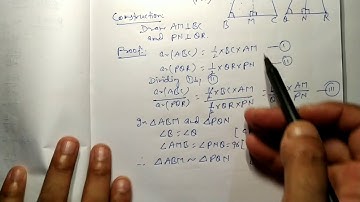 B M C Q N R
Construction:
Draw AM⊥BC
and PN⊥QR.
Proof: ar(ABC) = 1/2 × BC × AM — (I)
ar(PQR) = 1/2 × QR × PN — (II)
Dividing (I) by (II)
ar(ABC)/ar(PQR) = (1/2 × BC × AM)/(1/2 × QR × PN) = × AM/PN — (III)
In △ABM and △PQN
∠B = ∠Q [
∠AMB = ∠PNQ = 90° [
∴ △ABM ~ △PQN